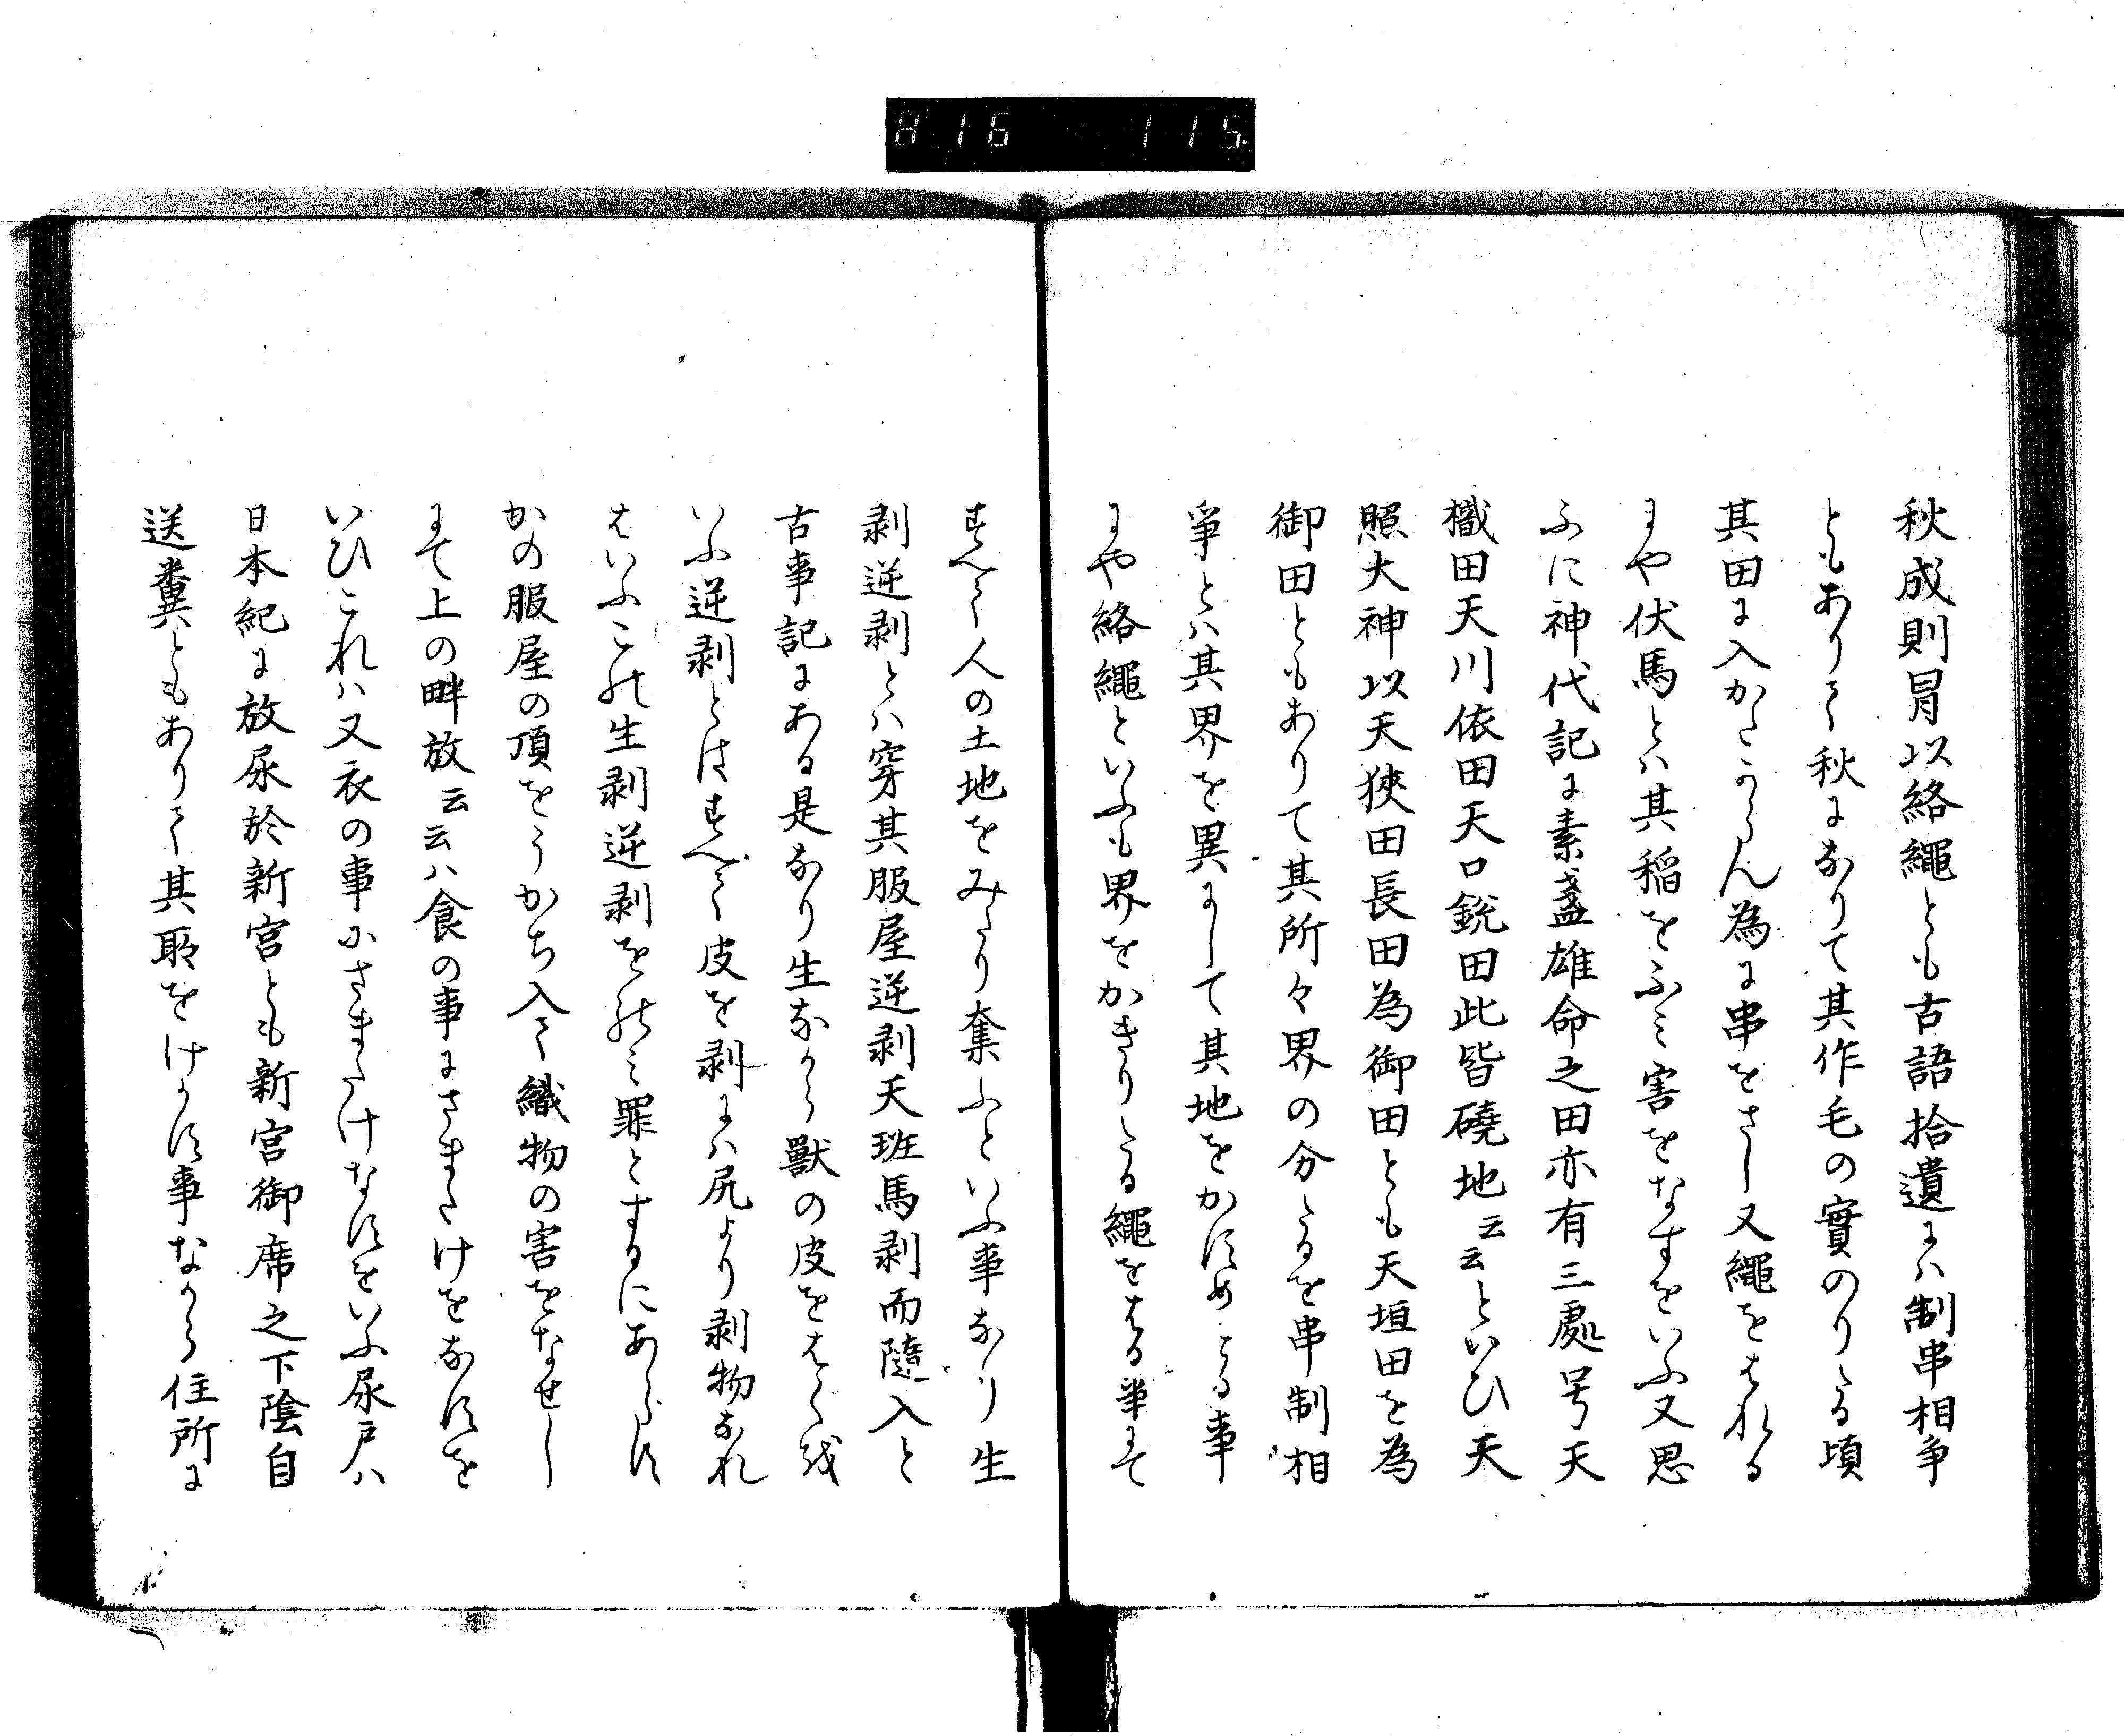 8 16 115.
秋成則冒以絡繩とも古語拾遺にハ制串相争
ともありて秋になりて其作毛の實のりたる頃
其田に入かたからん為に串をさし又繩をはれる
にや伏馬とハ其稲をふミ害をなすをいふ又思
ふに神代記に素盞雄命之田亦有三處号天
樴田天川依田天口鋭田此皆磽地云云といひ天
照大神以天狹田長田為御田とも天垣田を為
御田ともありて其所々界の分たるを串制相
爭とハ其界を異にして其地をかすめとる事
にや絡繩といふも界をかきりたる繩をはる事にて
すへて人の土地をみたり奪ふといふ事なり生
剥逆剥とハ穿其服屋逆剥天班馬剥而隨入と
古事記にある是なり生なから獸の皮をはくを
いふ逆剥とはすへて皮を剥にハ尻より剥物なれ
はいふこの生剥逆剥をのミ罪とするにあらす
かの服屋の頂をうかち入て織物の害をなせし
にて上の畔放云云ハ食の事にさまたけをなすを
いひこれハ又衣の事にさまたけなすをいふ尿戸ハ
日本紀に放尿於新宮とも新宮御席之下陰自
送糞ともありて其耻をけかす事なから住所に